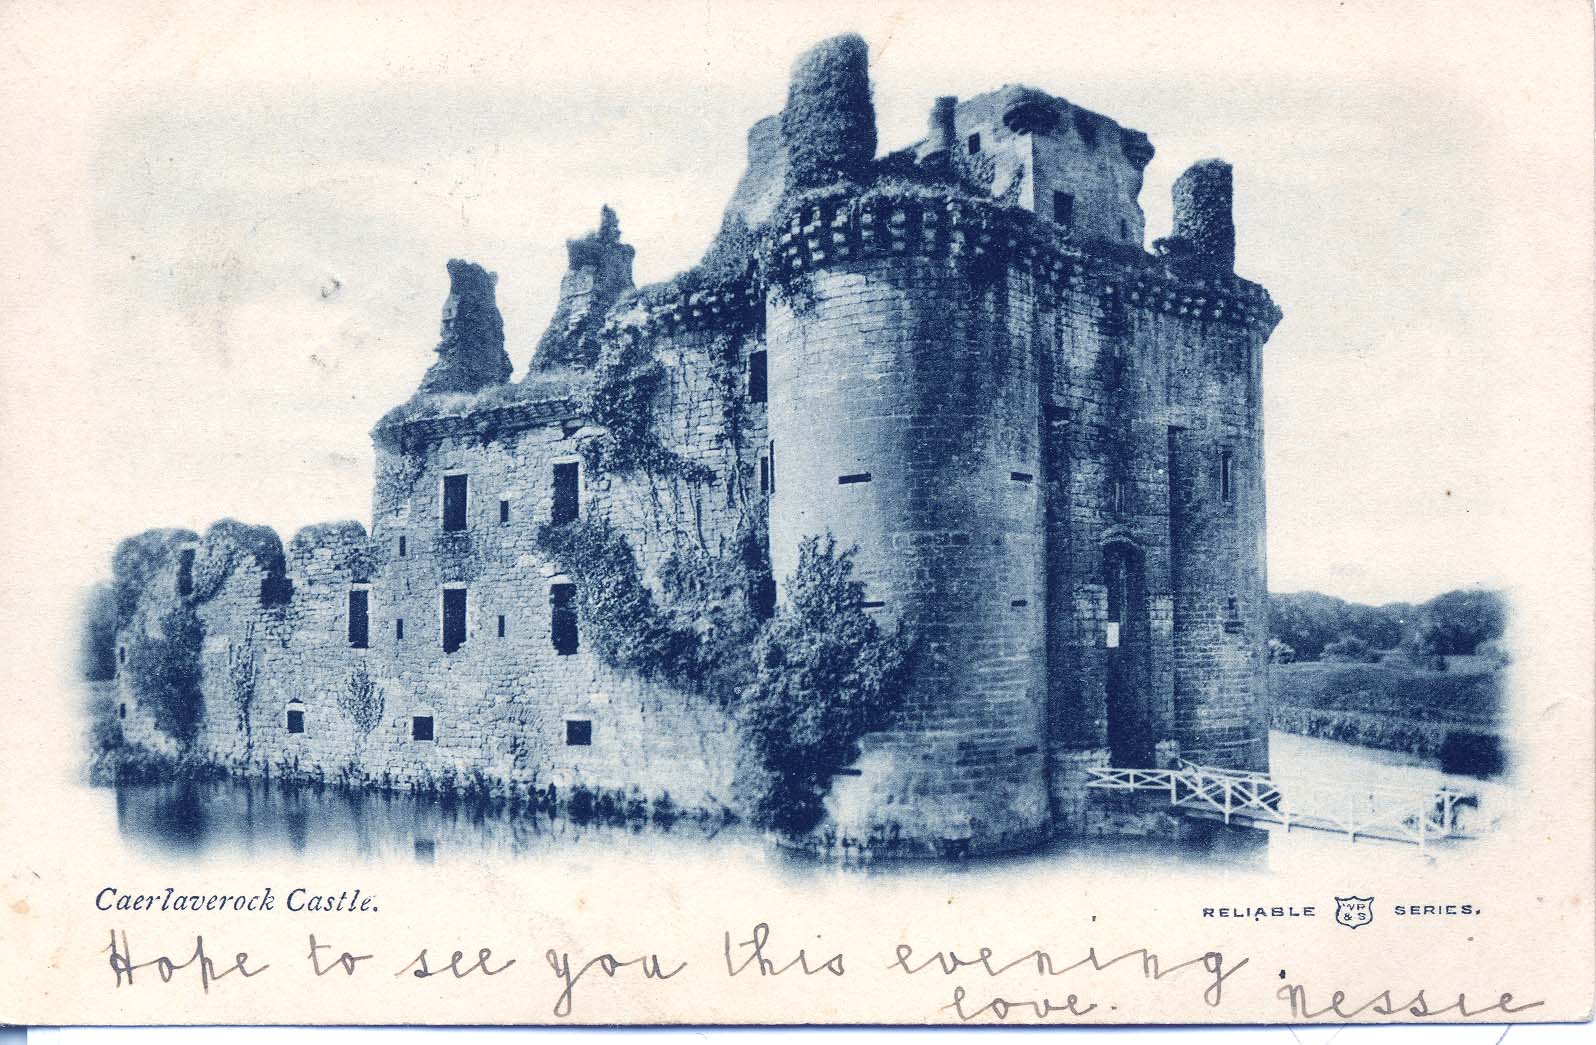 Caerlaverock Castle.
RELIABLE WR & S SERIES.
Hope to see you this evening.
love. Nessie